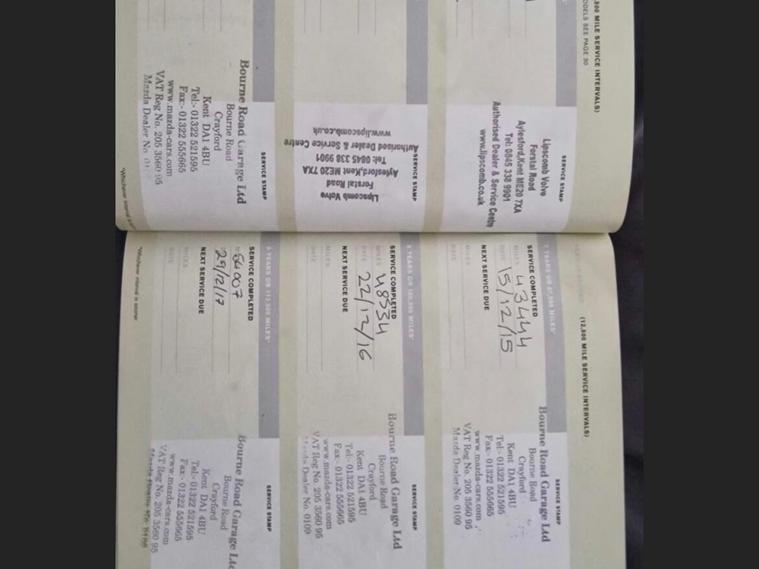 ,500 MILE SERVICE INTERVALS)
ODELS SEE PAGE 30
SERVICE STAMP
Lipscomb Volvo
Forstal Road
Aylesford, Kent ME20 7XA
Tel: 0845 338 9901
Authorised Dealer & Service Centre
www.lipscomb.co.uk
SERVICE STAMP
Lipscomb Volvo
Forstal Road
Aylesford, Kent ME20 7XA
Tel: 0845 338 9901
Authorised Dealer & Service Centre
www.lipscomb.co.uk
SERVICE STAMP
Bourne Road Garage Ltd
Bourne Road
Crayford
Kent DA1 4BU
Tel:- 01322 521595
Fax:- 01322 555665
www.mazda-cars.com
VAT Reg No. 205 3560 95
Mazda Dealer No.
*Whichever interval
(12,500 MILE SERVICE INTERVALS)
SERVICE COMPLETED
MILES 43444
DATE 15/12/15
NEXT SERVICE DUE
MILES
DATE
SERVICE STAMP
Bourne Road Garage Ltd
Bourne Road
Crayford
Kent DA1 4BU
Tel:- 01322 521595
Fax:- 01322 555665
www.mazda-cars.com
VAT Reg No. 205 3560 95
Mazda Dealer No. 0109
8 YEARS OR 100,000 MILES*
SERVICE COMPLETED
MILES 48334
DATE 22/12/16
NEXT SERVICE DUE
MILES
DATE
SERVICE STAMP
Bourne Road Garage Ltd
Bourne Road
Crayford
Kent DA1 4BU
Tel:- 01322 521595
Fax:- 01322 555665
www.mazda-cars.com
VAT Reg No. 205 3560 95
Mazda Dealer No. 0109
9 YEARS OR 112,500 MILES*
SERVICE COMPLETED
54007
29/12/17
NEXT SERVICE DUE
MILES
DATE
SERVICE STAMP
Bourne Road Garage Ltd
Bourne Road
Crayford
Kent DA1 4BU
Tel:- 01322 521595
Fax:- 01322 555665
www.mazda-cars.com
VAT Reg No. 205 3560 95
*Whichever interval is sooner